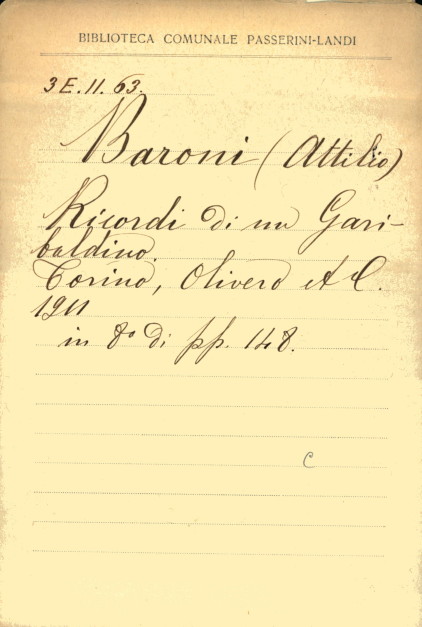 BIBLIOTECA COMUNALE PASSERINI-LANDI
3 E. 11. 63.
Baroni (Attilio)
Ricordi di un Gari-
baldino.
Torino, Olivero et C.
1911
in 8º di pp. 148.
C